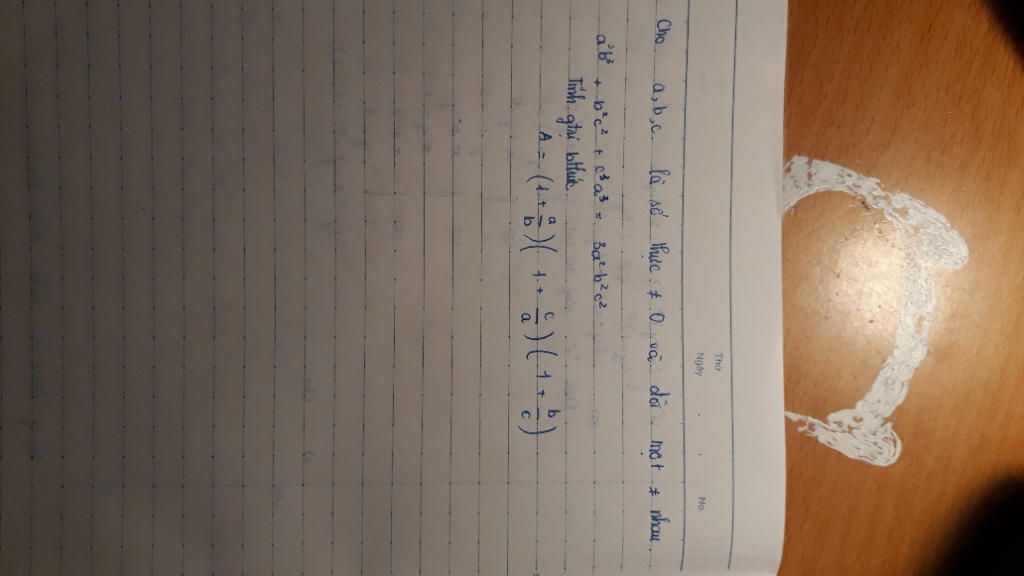 Thứ
Ngày
No.
Cho a, b, c là số thực ≠ 0 và đôi một ≠ nhau.
a³b³ + b²c² + c³a³ = 3a²b²c²
Tính gtrị bthức
A = (1 + a/b)(1 + c/a)(1 + b/c)